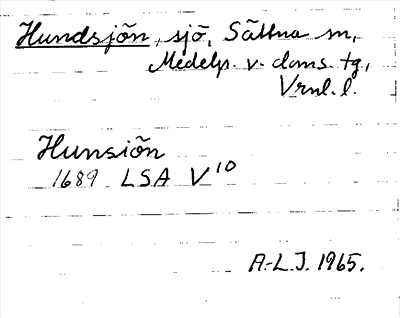 Hundsjön, sjö, Sättna sn,
Medelp. v. doms. tg,
Vrnl. l.
Hunsiön
1689 LSA V¹⁰
A-L.J. 1965.